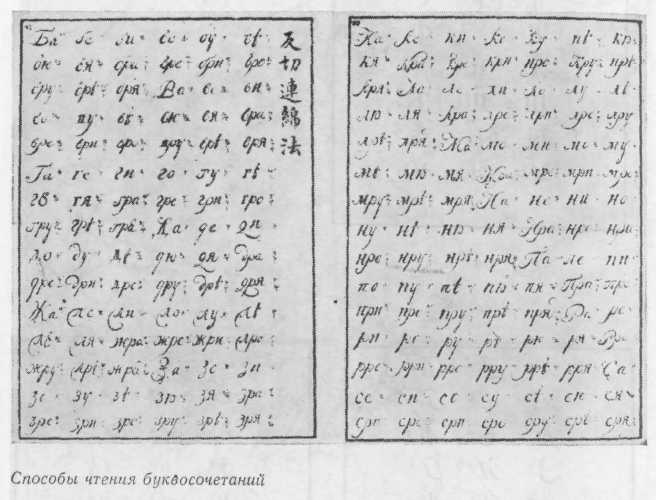 反切連綿法
Ба бе би бо бу бѣ
бю бя бра бре бри бро
бру брѣ бря Ва ве ви
во ву вѣ вю вя вра
вре ври вро вру врѣ вря
Га ге ги го гу гѣ
гю гя гра гре гри гро
гру грѣ гря Да де ди
до ду дѣ дю дя дра
дре дри дро дру дрѣ дря
Жа же жи жо жу жѣ
жю жя жра жре жри жро
жру жрѣ жря За зе зи
зо зу зѣ зю зя зра
зре зри зро зру зрѣ зря
Ка ке ки ко ку кѣ кю
кя Кра кре кри кро Кру крѣ
кря Ла ле ли ло лу лѣ
лю ля лра лре лри лро лру
лрѣ лря Ма ме ми мо му
мѣ мю мя Мра мре мри мро
мру мрѣ мря На не ни но
ну нѣ ню ня Нра нре нри
нро нру нрѣ нря Па пе пи
по пу пѣ пю пя Пра пре
при про пру прѣ пря Ра ре
ри ро ру рѣ рю ря Рра
рре рри рро рру ррѣ рря Са
се си со су сѣ сю ся
сра сре сри сро сру срѣ сря
Способы чтения буквосочетаний